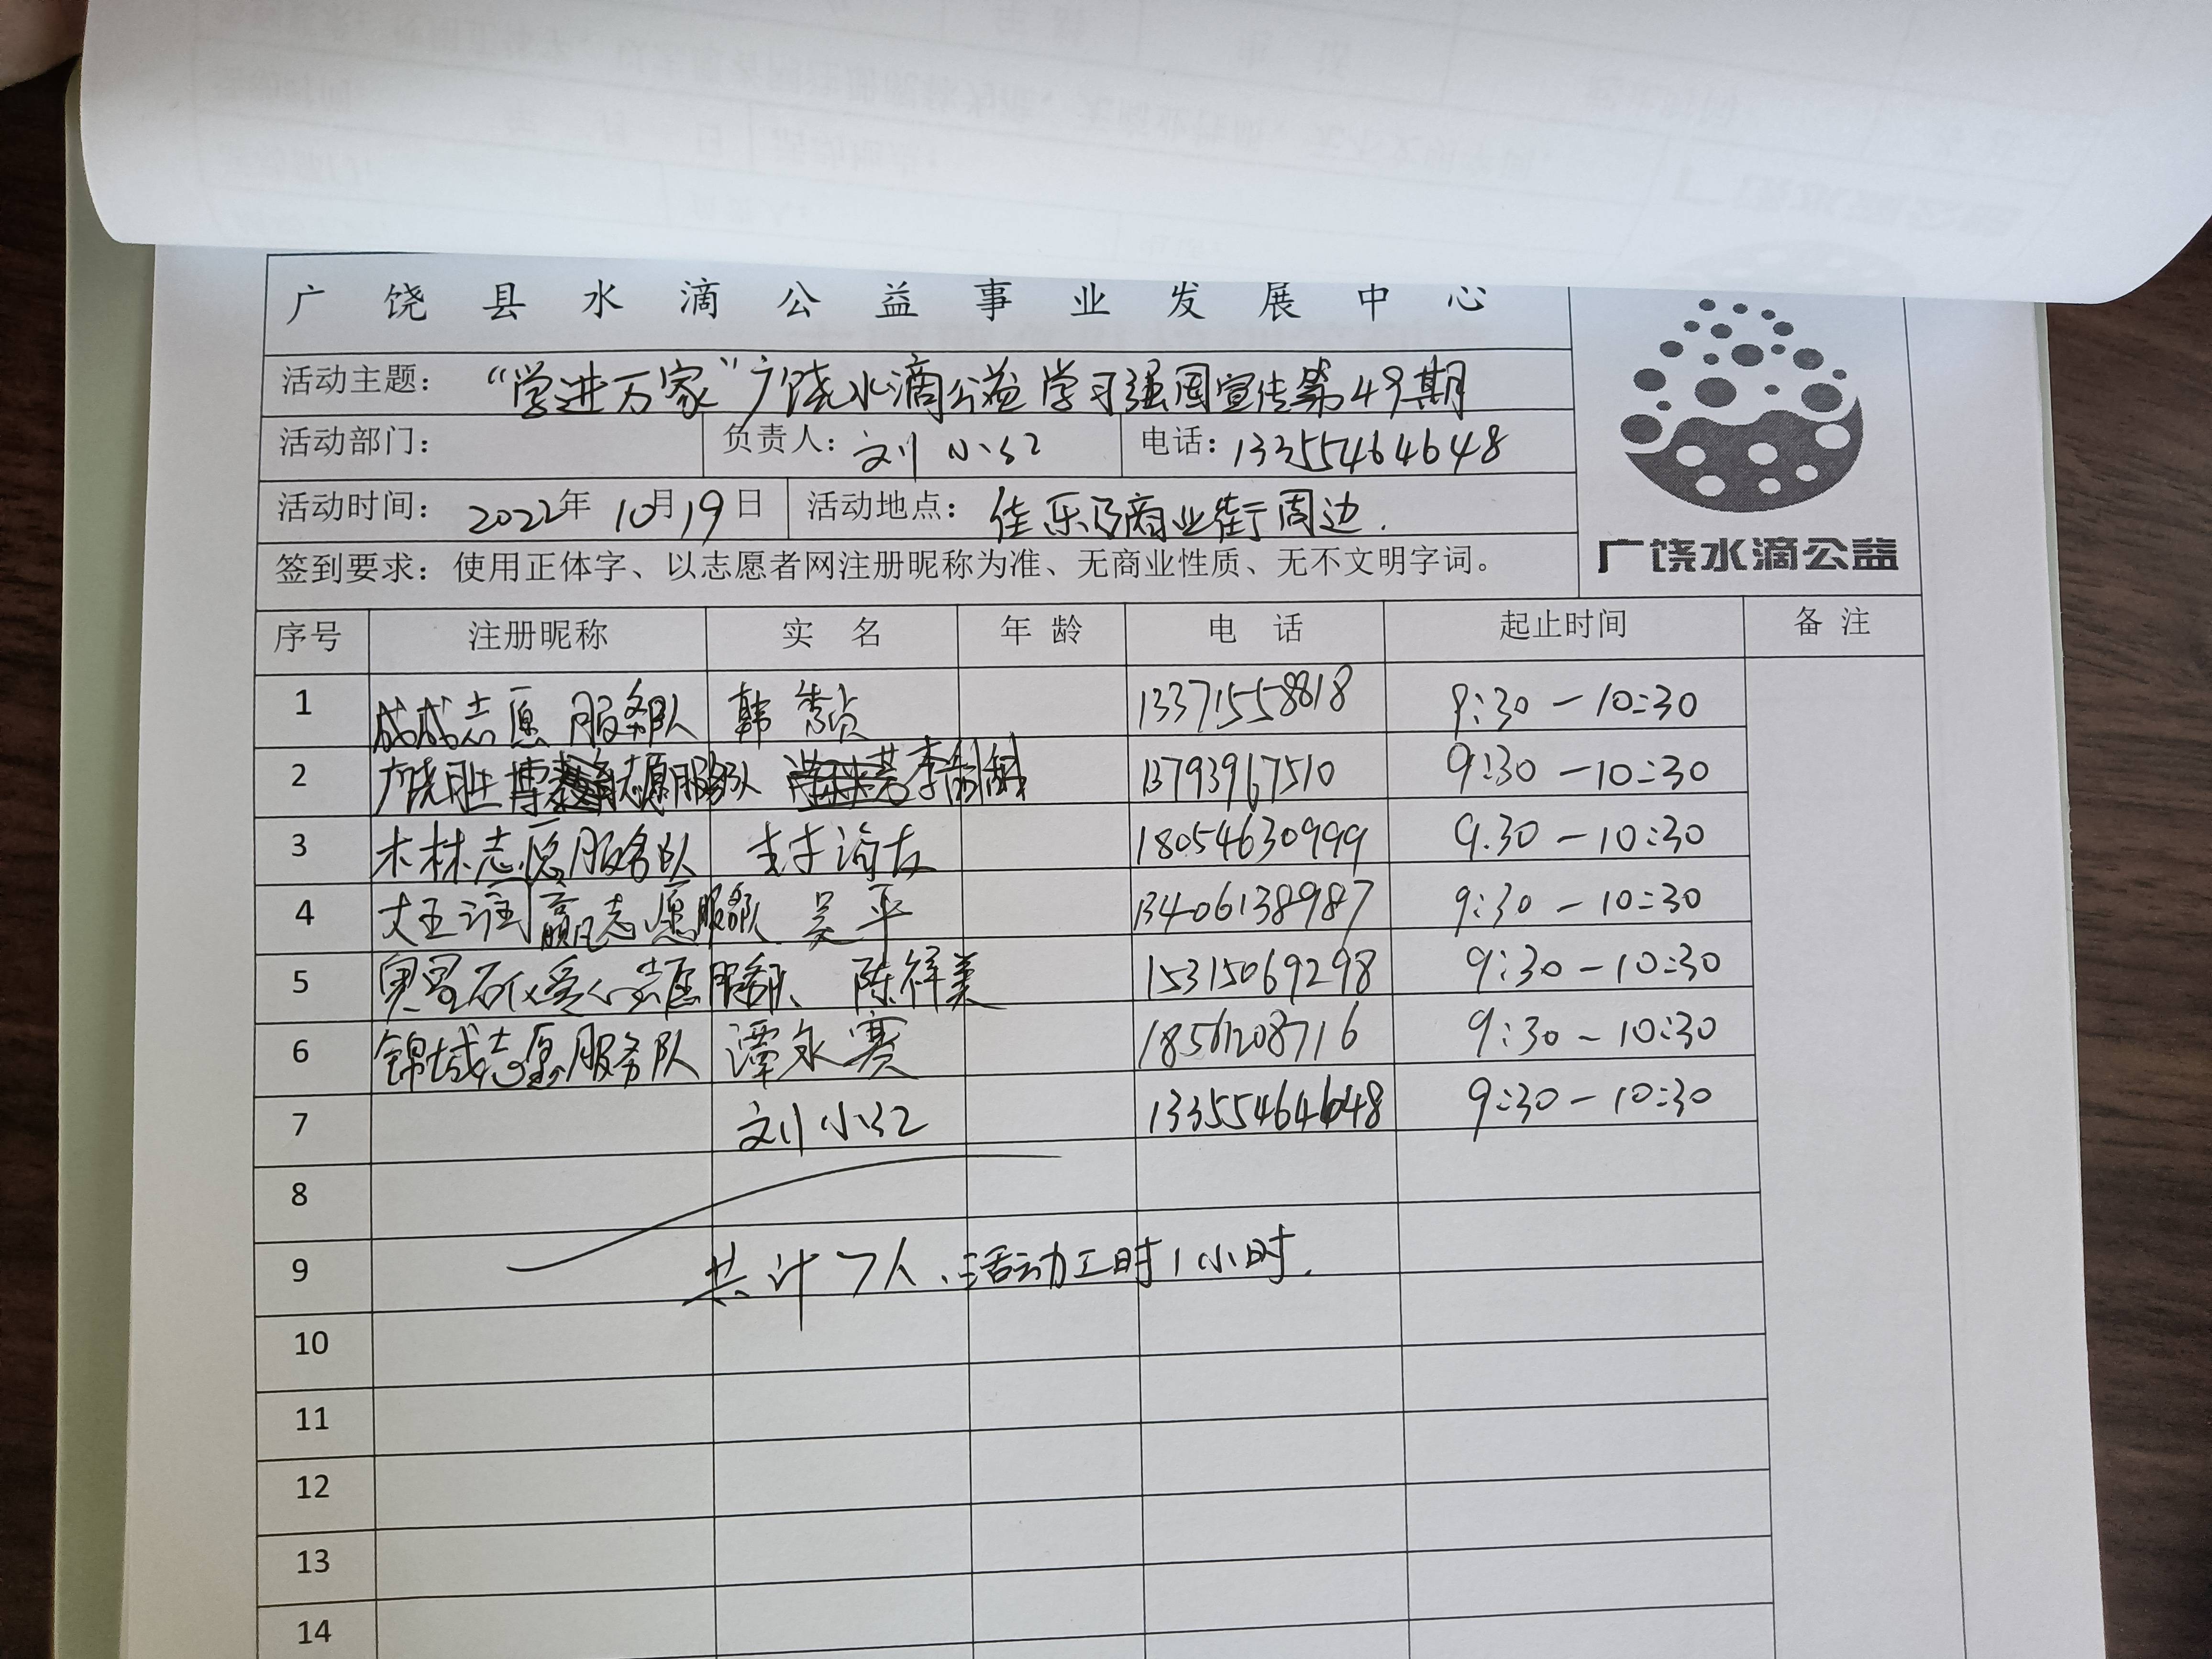 广饶县水滴公益事业发展中心
活动主题：“学进万家”广饶水滴公益学习强国宣传第49期
活动部门： 负责人：刘小红 电话：13355464648
活动时间：2022年10月19日 活动地点：佳乐乃商业街周边.
签到要求：使用正体字、以志愿者网注册昵称为准、无商业性质、无不文明字词。
广饶水滴公益
序号 注册昵称 实名 年龄 电话 起止时间 备注
1 成成志愿服务队 韩秀贞 13371558818 9:30-10:30
2 广饶 志愿服务队 李 13793967510 9:30-10:30
3 木林志愿服务队 13054630999 9.30-10:30
4 赢志愿服务队 吴平 13406138987 9:30-10:30
5 志愿服务队 陈祥美 15315069298 9:30-10:30
6 锦城志愿服务队 谭永赛 9:30-10:30
7 刘小红 13355464648 9:30-10:30
8
9 共计7人、活动工时1小时.
10
11
12
13
14